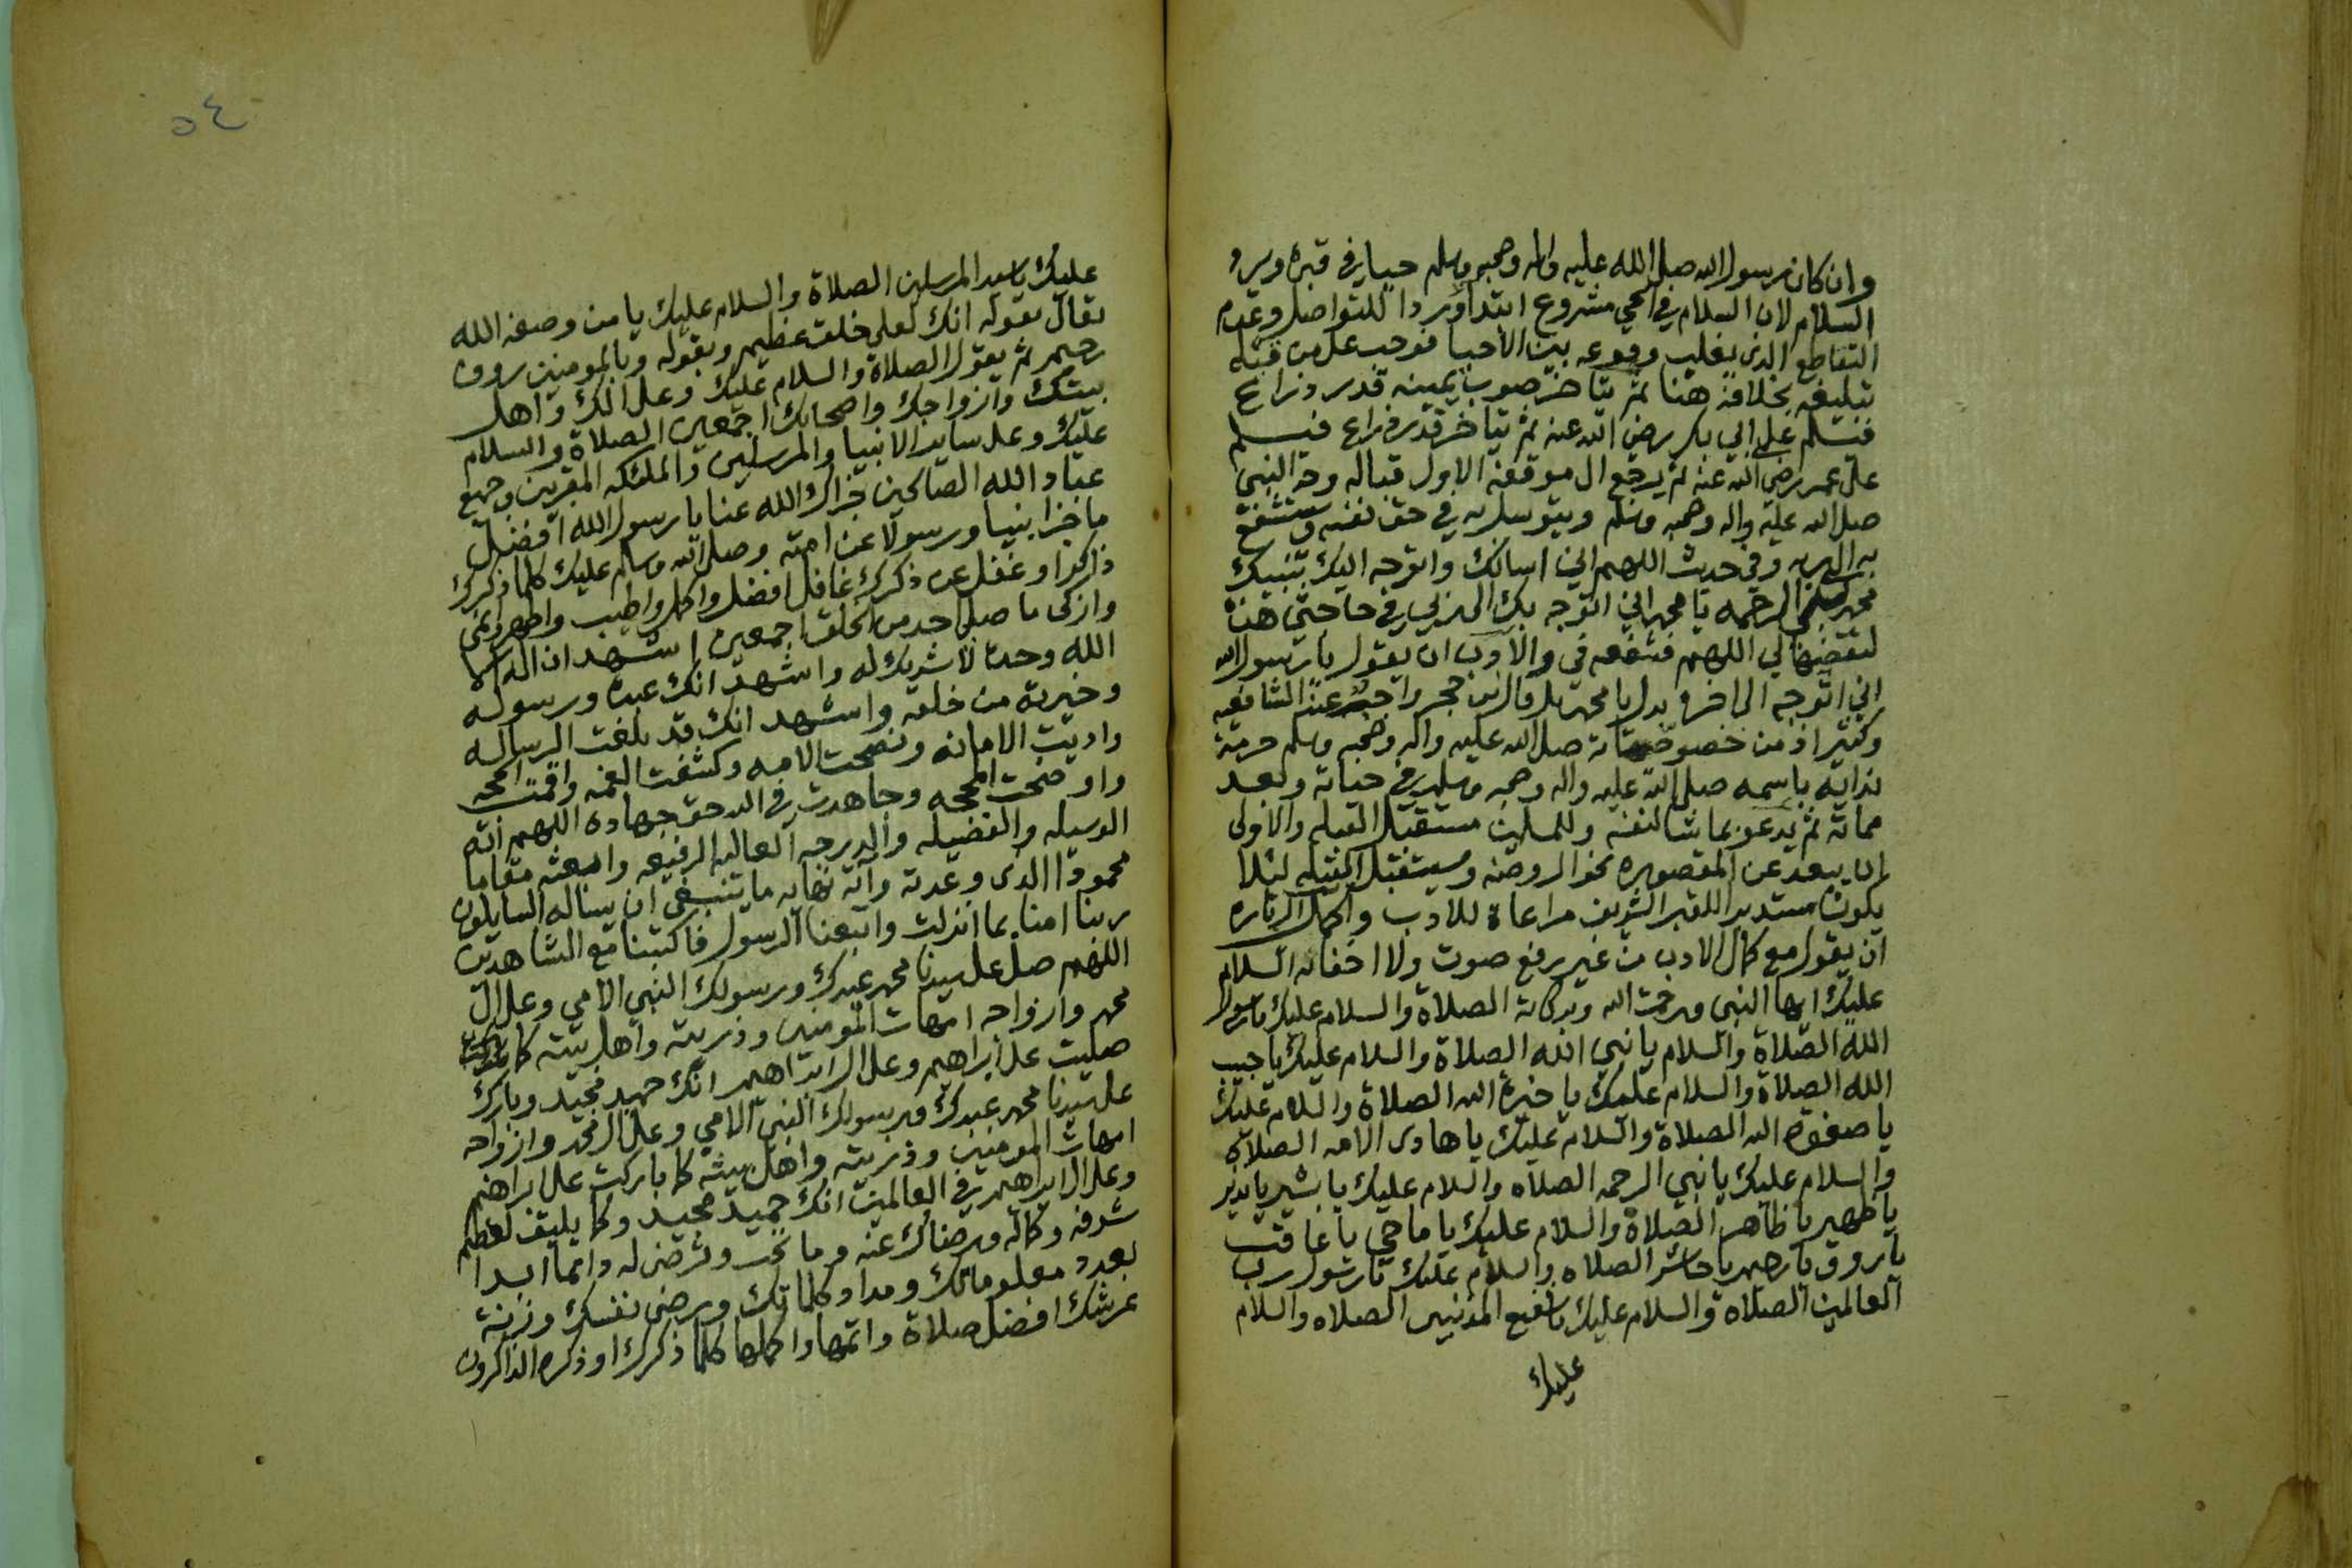 وان كان رسول الله صلى الله عليه واله وصحبه وسلم حيا في قبره ويرد
السلام لان السلام في الحي مشروع ابتدا وردا للتواصل وعدم
التقاطع الذي يغلب وقوعه بين الأحيا فوجب على من قبله
تبليغه بخلافه هنا ثم يتاخر صوب يمينه قدر ذراع
فيسلم على ابي بكر رضي الله عنه ثم يتاخر قدر ذراع فيسلم
على عمر رضي الله عنه ثم يرجع الى موقفه الاول قباله وجه النبي
صلى الله عليه واله وصحبه وسلم ويتوسل به في حق نفسه ويستشفع
به الى ربه وفي حديث اللهم اني اسالك واتوجه اليك بنبيك
محمد نبي الرحمه يا محمد اني اتوجه بك الى ربي في حاجتي هذه
لتقضيها لي اللهم فشفعه في والأدب ان يقول يا رسول الله
اني اتوجه الى اخره بدل يا محمد بل قال ابن حجر واجب عند الشافعيه
وكثير اذ من خصوصياته صلى الله عليه واله وصحبه وسلم حرمة
ندايه باسمه صلى الله عليه واله وصحبه وسلم في حياته وبعد
مماته ثم يدعو بما شا لنفسه وللمسلمين مستقبل القبله والأولى
ان يبعد عن المقصوره نحو الروضه ويستقبل القبله ليلا
يكون مستدبر اللقبر الشريف مراعاة للادب واكمل الزياره
ان يقول مع كمال الادب من غير رفع صوت ولا اخفايه السلام
عليك ايها النبي ورحمت الله وبركاته الصلاة والسلام عليك يا رسول
الله الصلاة والسلام يا نبي الله الصلاة والسلام عليك يا حبيب
الله الصلاة والسلام عليك يا خيرة الله الصلاة والسلام عليك
يا صفوة الله الصلاة والسلام عليك يا هادى الامه الصلاه
والسلام عليك يا نبي الرحمه الصلاه والسلام عليك يا بشير يا نذير
يا طهير يا ظاهر الصلاة والسلام عليك يا ماحي يا عاقب
يا روف يا رحيم يا حاشر الصلاه والسلام عليك يا رسول رب
العالمين الصلاه والسلام عليك يا شفيع المذنبين الصلاه والسلام
عليك
٥٤
عليك يا سيد المرسلين الصلاة والسلام عليك يا من وصفه الله
تعالى بقوله انك لعلى خلق عظيم وبقوله وبالمومنين روف
رحيم ثم يقول الصلاة والسلام عليك وعلى الك واهل
بيتك وازواجك واصحابك اجمعين الصلاة والسلام
عليك وعلى ساير الانبيا والمرسلين والملئكه المقربين وجميع
عباد الله الصالحين جزاك الله عنا يا رسول الله افضل
ما جزا نبيا ورسولا عن امته وصلى الله وسلم عليك كلما ذكرك
ذاكر او غفل عن ذكرك غافل افضل واكمل واطيب واطهر وانمى
وازكى ما صلى احد من الخلق اجمعين اشهد ان لا اله الا
الله وحده لا شريك له واشهد انك عبده ورسوله
وخيرته من خلقه واشهد انك قد بلغت الرساله
واديت الامانه ونصحت الامه وكشفت الغمه واقمت الحجه
واوضحت المحجه وجاهدت في الله حق جهاده اللهم اته
الوسيله والفضيله والدرجه العاليه الرفيعه وابعثه مقاما
محمودا الذى وعدته واته نهايه ما ينبغي ان يساله السايلون
ربنا امنا بما انزلت واتبعنا الرسول فاكتبنا مع الشاهدين
اللهم صل على سيدنا محمد عبدك ورسولك النبي الامي وعلى ال
محمد وازواجه امهات المومنين وذريته واهل بيته كما
صليت على ابراهيم وعلى ال ابراهيم انك حميد مجيد وبارك
على سيدنا محمد عبدك ورسولك النبي الامي وعلى ال محمد وازواجه
امهات المومنين وذريته واهل بيته كما باركت على ابراهيم
وعلى ال ابراهيم في العالمين انك حميد مجيد وكما يليق لعظيم
شرفه وكماله ورضاك عنه وما تحب وترضى له دائما ابدا
بعدد معلوماتك ومداد كلماتك ورضى نفسك وزنة
عرشك افضل صلاة واتمها واكملها كلما ذكرك او ذكره الذاكرون